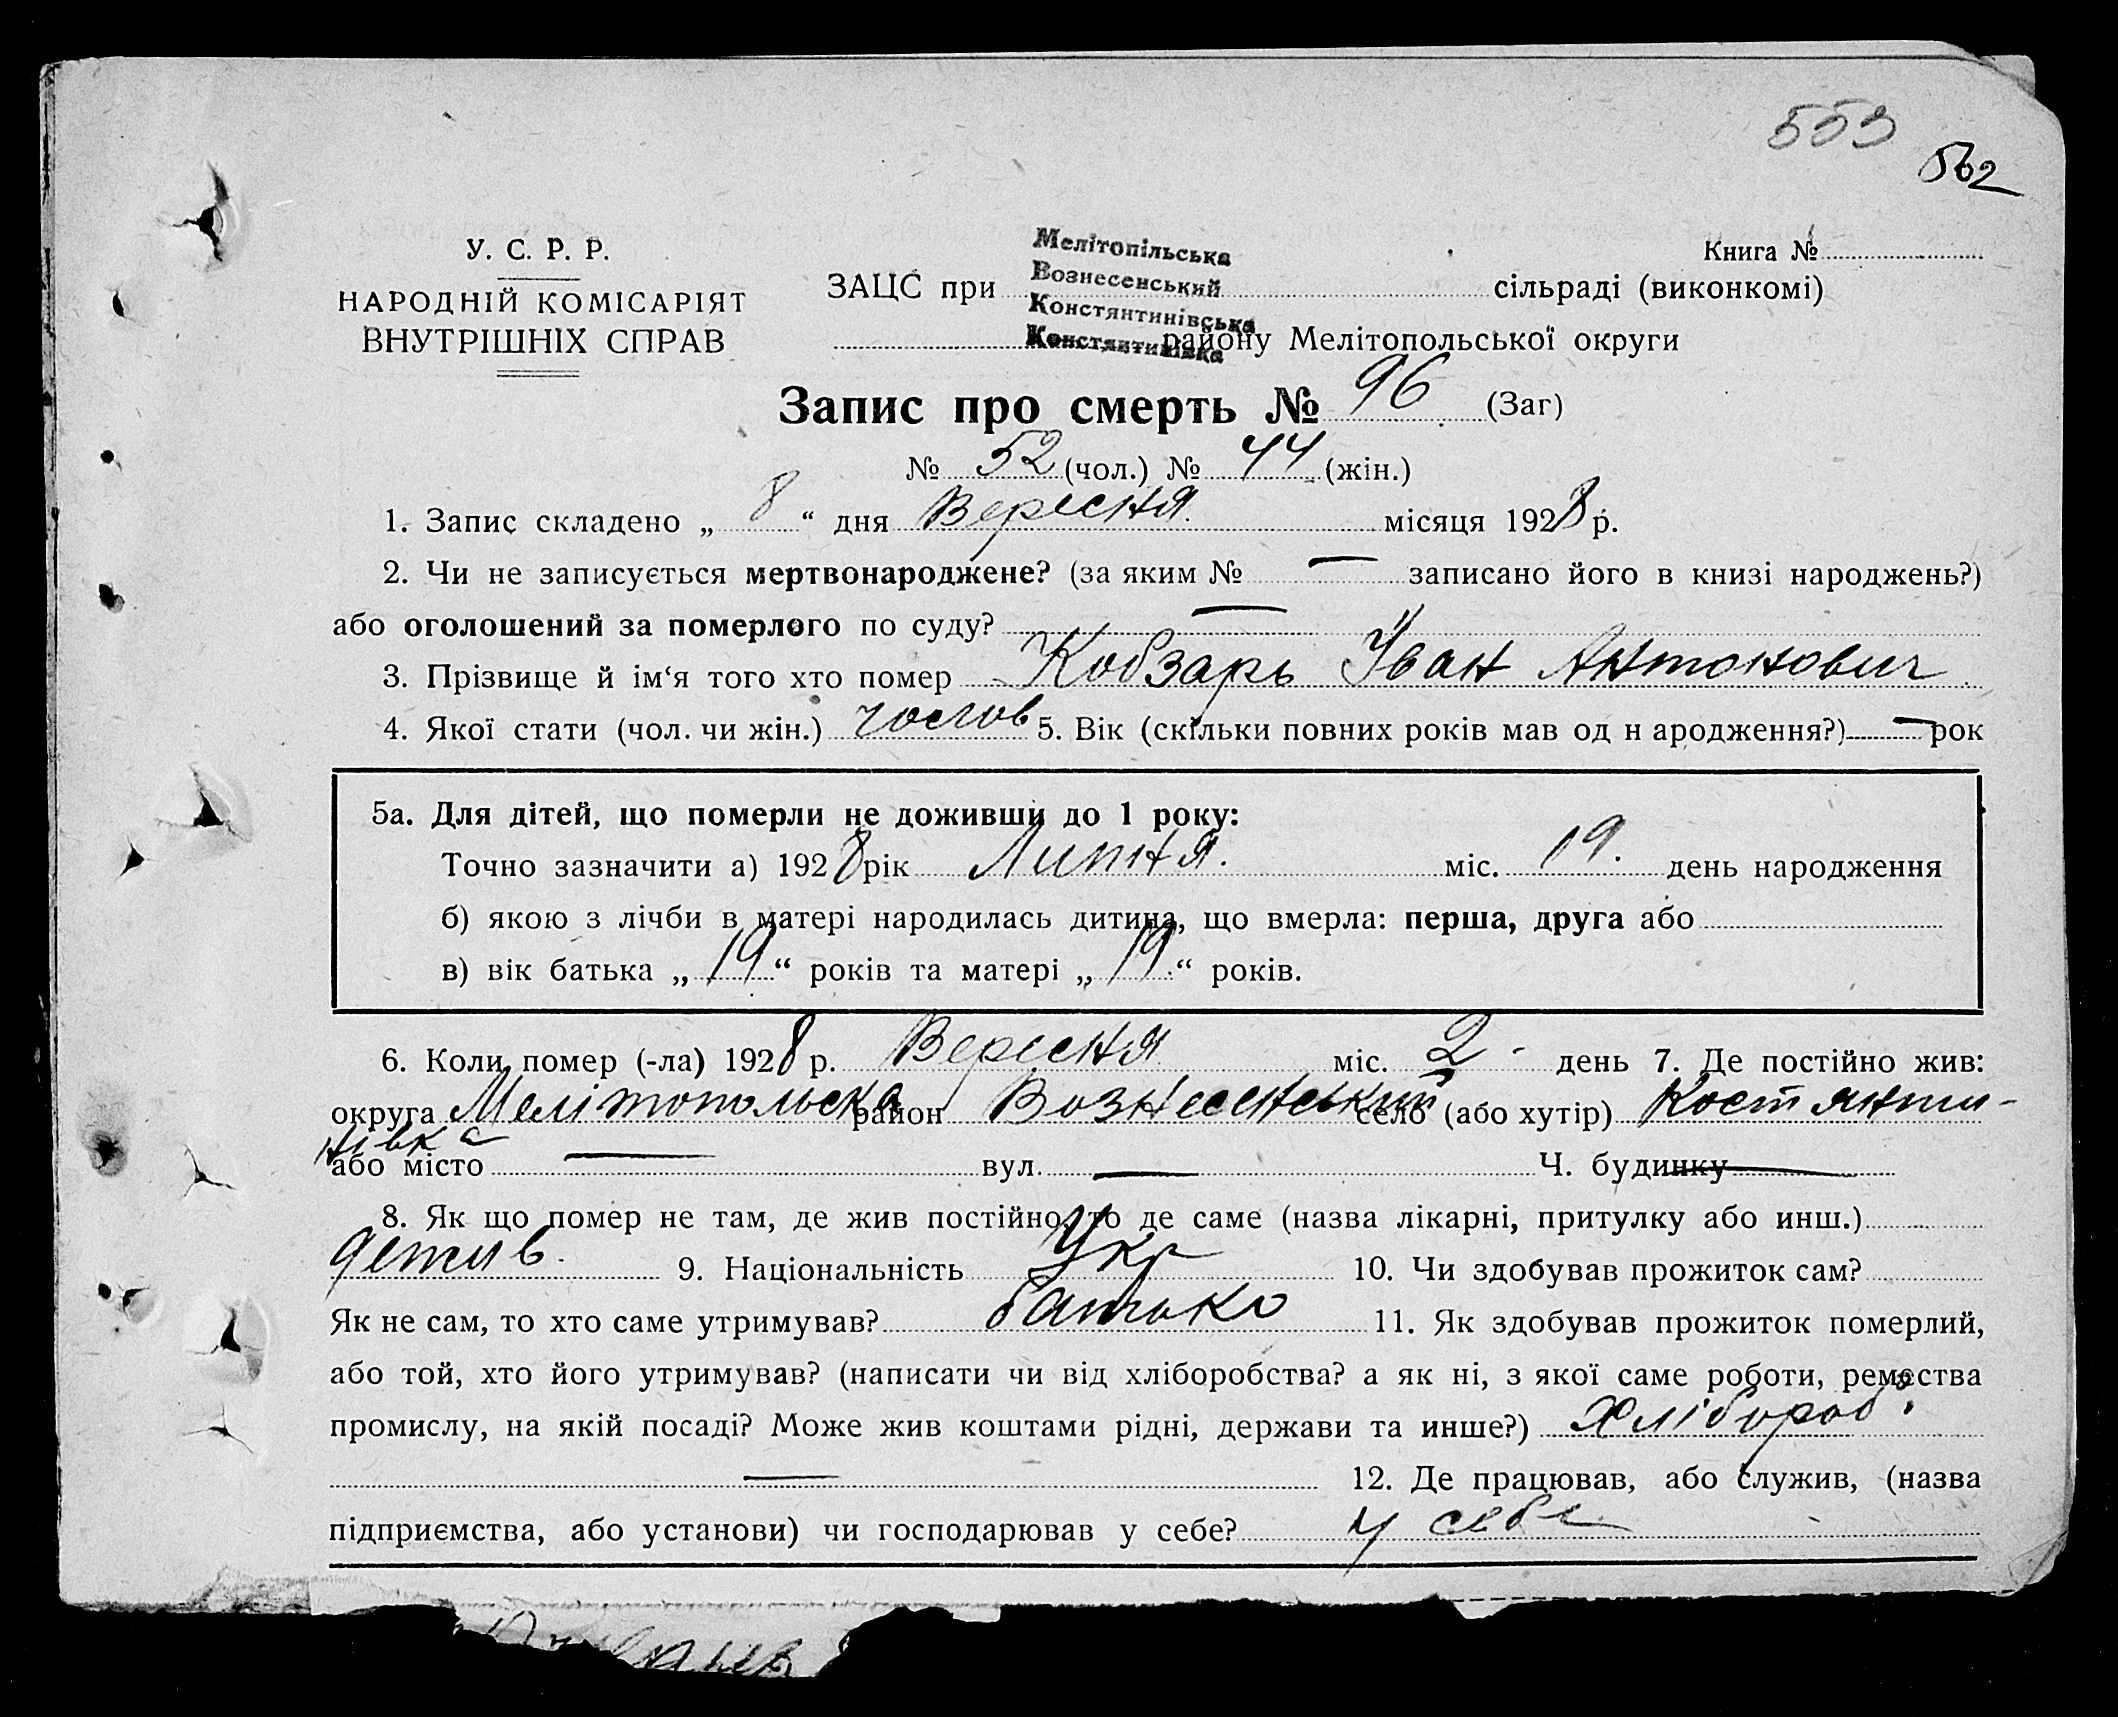 553
562
У. С. Р. Р.
НАРОДНІЙ КОМІСАРІЯТ
ВНУТРІШНІХ СПРАВ
Книга №
Мелітопільська
Вознесенський
Констянтинівська
Констянтинівка
ЗАЦС при сільраді (виконкомі)
району Мелітопольської округи
Запис про смерть № 96 (Заг)
№ 52 (чол.) № 44 (жін.)
1. Запис складено „ 8 “ дня Вересня місяця 1928 р.
2. Чи не записується мертвонароджене? (за яким № — записано його в книзі народжень?)
або оголошений за померлого по суду? —
3. Прізвище й ім‘я того хто помер Кобзарь Іван Антонович
4. Якої стати (чол. чи жін.) чолов 5. Вік (скільки повних років мав од н ародження?) — рок
5а. Для дітей, що померли не доживши до 1 року:
Точно зазначити а) 1928 рік Липня. міс. 19. день народження
б) якою з лічби в матері народилась дитина, що вмерла: перша, друга або
в) вік батька „ 19 “ років та матері „ 19 “ років.
6. Коли помер (-ла) 1928 р. Вересня міс. 2 - день 7. Де постійно жив:
округа Мелітопольска район Вознесенський село (або хутір) Костянти-
нівка
або місто — вул. — Ч. будинку —
8. Як що помер не там, де жив постійно, то де саме (назва лікарні, притулку або инш.)
де жив. 9. Національність Укр 10. Чи здобував прожиток сам?
Як не сам, то хто саме утримував? батько 11. Як здобував прожиток померлий,
або той, хто його утримував? (написати чи від хліборобства? а як ні, з якої саме роботи, ремества
промислу, на якій посаді? Може жив коштами рідні, держави та инше?) Хлібороб.
— 12. Де працював, або служив, (назва
підприємства, або установи) чи господарював у себе? у себе